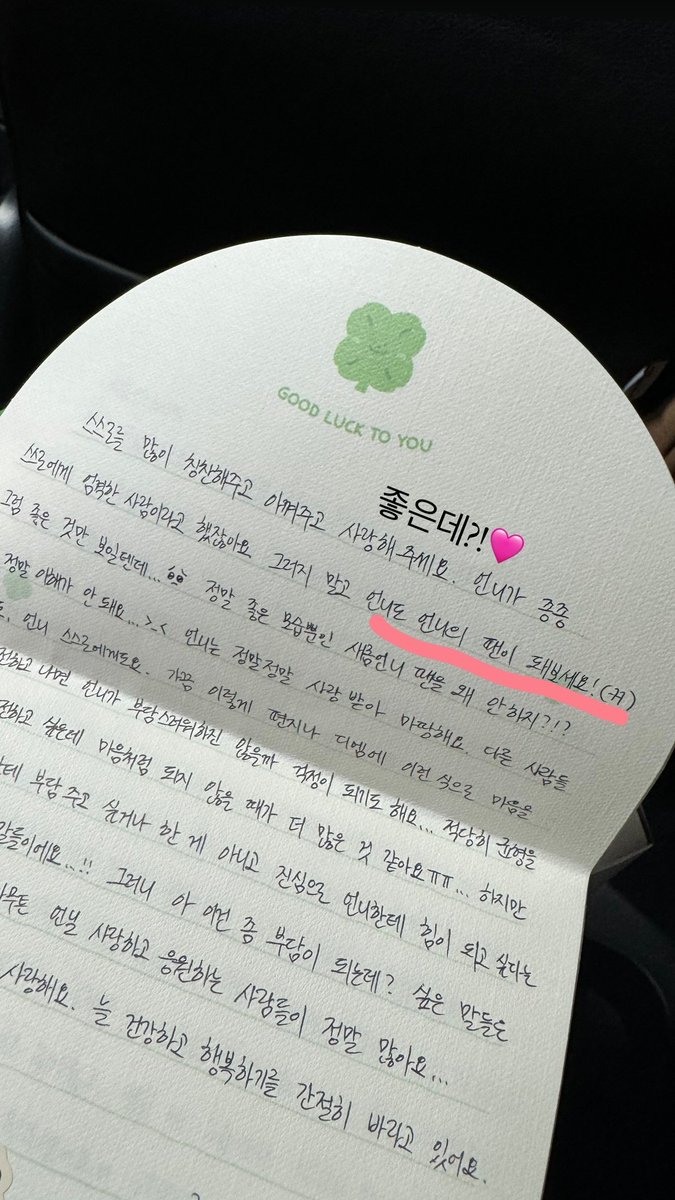 GOOD LUCK TO YOU
스스로를 많이 칭찬해주고 아껴주고 사랑해 주세요. 언니가 종종
좋은데?!🩷
스스로에게 엄격한 사람이라고 했잖아요 그러지 말고 언니도 언니의 팬이 돼보세요! (ㅋㅋ)
그럼 좋은 것만 보일텐데... 정말 좋은 모습뿐인 새롬언니 팬을 왜 안하지?!?
정말 이해가 안 돼요...>_< 언니는 정말정말 사랑 받아 마땅해요. 다른 사람들
언니 스스로에게도요. 가끔 이렇게 편지나 디엠에 이런 식으로 마음을
전하고 나면 언니가 부담스러워하진 않을까 걱정이 되기도 해요... 적당히 균형을
전하고 싶은데 마음처럼 되지 않을 때가 더 많은 것 같아요ㅠㅠ... 하지만
부담 주고 싶거나 한 게 아니고 진심으로 언니한테 힘이 되고 싶다는
말들이에요...!! 그러니 아 이건 좀 부담이 되는데? 싶은 말들은
언닐 사랑하고 응원하는 사람들이 정말 많아요...
사랑해요. 늘 건강하고 행복하기를 간절히 바라고 있어요.